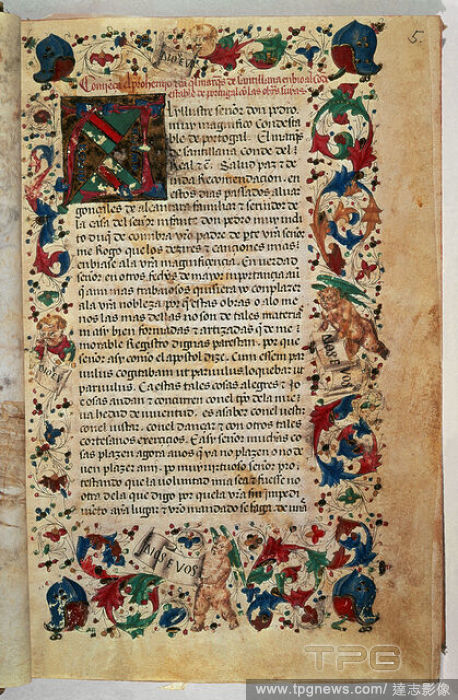 5.
DIOS E VOS
Comiença el prohemio q̃l marq̃s de santillana enbio al Code
stable de portugal cõ las obras suyas.
Al yllustre señor don pedro
muy magnifico Condesta
ble de portogal. El marq̃s
de santillana conde del
Real &c. Salud paz & de
uida Recomendacion. en
estos dias passados aluar
gonçales de alcantara familiar & seruidor de
la casa del señor infante don pedro muy indi
to duq̃ de coimbra vr̃o padre de pte vr̃a señor
me Rogo que los dezires & canciones mias
enbiase ala vr̃a magnificencia. En verdad
señor en otros fechos de mayor inportançia aũ
q̃ a mi mas trabaiosos quisiera yo conplazer
ala vr̃a nobleza. por q̃ estas obras o alo me
nos las mas dellas no son de tales materias
ni asy bien formadas & artizadas q̃ de me
morable Registro dignas parescan. por que
señor asy como el apostol dize. Cum essem par
uulus cogitabam ut paruulus loquebar ut
paruulus. Ca estas tales cosas alegres & jo
cosas andan & concurren con el tp̃o dela nue
ua hedad de iuuentud. es a saber con el uestir
con el iustar. con el dançar & con otros tales
cortesanos exerciçios. E asy señor muchas co
sas plazen agora a uos q̃ ya no plazen o no de
uen plazer a my. po muy uirtuoso señor pro
testando que la voluntad mia sea & fuesse no
otra dela que digo por que la vr̃a sin inpedi
mẽto aya lugar & vr̃o mandado se faga. de una
DIOS E VOS
DIOS E VOS
DIOS E VOS
TPG
www.tpgnews.com / 達志影像